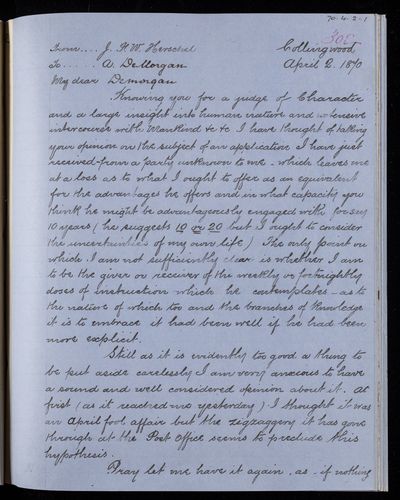 70.4.2.1
305
From.... J. F. W. Herschel
Collingwood
To...... A. DeMorgan
April 2. 1870
My dear Demorgan
Knowing you for a judge of Character
and a large insight into human nature and extensive
intercourse with Mankind &c &c I have thought of taking
your opinion on the subject of an application I have just
received from a party unknown to me - which leaves me
at a loss as to what I ought to offer as an equivalent
for the advantages he offers and in what capacity you
think he might be advantageously engaged with for say
10 years (he suggests 10 or 20 but I ought to consider
the uncertainties of my own life) The only point on
which I am not sufficiently clear is whether I am
to be the giver or receiver of the weekly or fortnightly
doses of instruction which he contemplates - as to
the nature of which too and the branches of Knowledge
it is to embrace it had been well if he had been
more explicit.
Still as it is evidently too good a thing to
be put aside carelessly I am very anxious to have
a sound and well considered opinion about it. At
first (as it reached me yesterday) I thought it was
an April fool affair but the zigzaggery it has gone
through at the Post Office seems to preclude this
hypothesis.
Pray let me have it again, as - if nothing